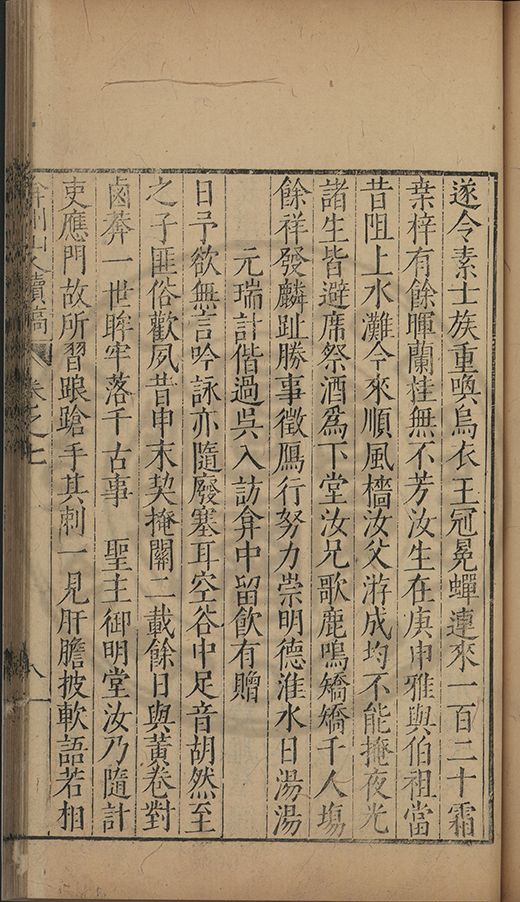 遂令素士族重喚烏衣王冠冕蟬連來一百二十霜
桒梓有餘暉蘭桂無不芳汝生在庚申雅與伯祖當
昔阻上水灘今來順風檣汝父游成均不能掩夜光
諸生皆避席祭酒爲下堂汝兄歌鹿鳴矯矯千人塲
餘祥發麟趾勝事徵鴈行努力崇明德淮水日湯湯
元瑞計偕過吳入訪弇中留飲有贈
日予欲無言吟詠亦隨廢塞耳空谷中足音胡然至
之子匪俗歡夙昔申末契掩關二載餘日與黃卷對
鹵莽一世眸牢落千古事 聖主御明堂汝乃隨計
吏應門故所習踉蹌手其刺一見肝膽披軟語若相
弇州山人續稿 卷之七 八